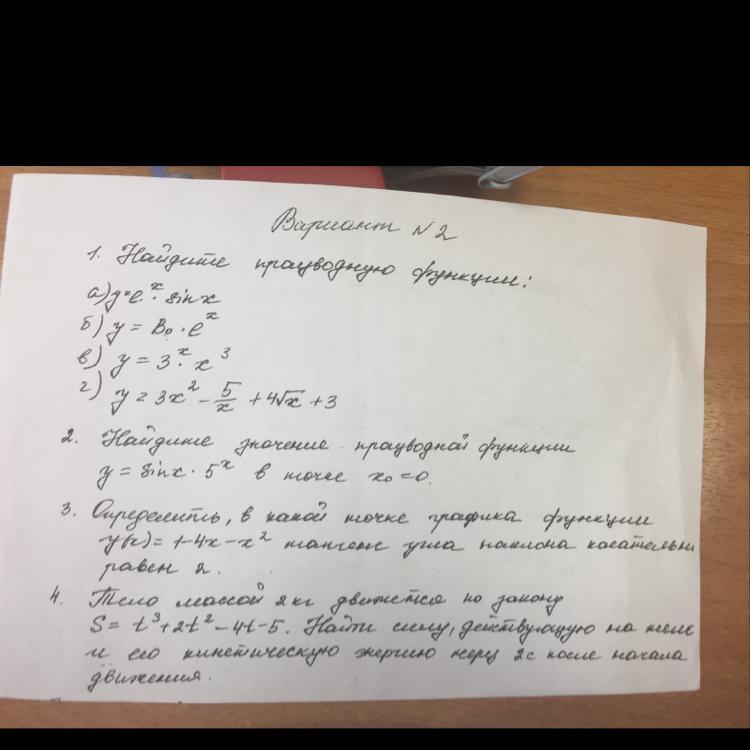 Вариант №2
1. Найдите працводную функции:
а) y=e^x · sinx
б) y = B₀ · e^x
в) y = 3^x · x^3
г) y = 3x^2 - 5/x + 4√x + 3
2. Найдите значение працводной функции
y = sinx · 5^x в точке x₀=0.
3. Определить, в какой точке графика функции
y(x)=1-4x-x^2 тангенс угла наклона касательн
равен 2.
4. Тело массой 2 кг движется по закону
S= t^3+2t^2-4t-5. Найти силу, действующую на тело
и его кинетическую энергию через 2с после начала
движения.